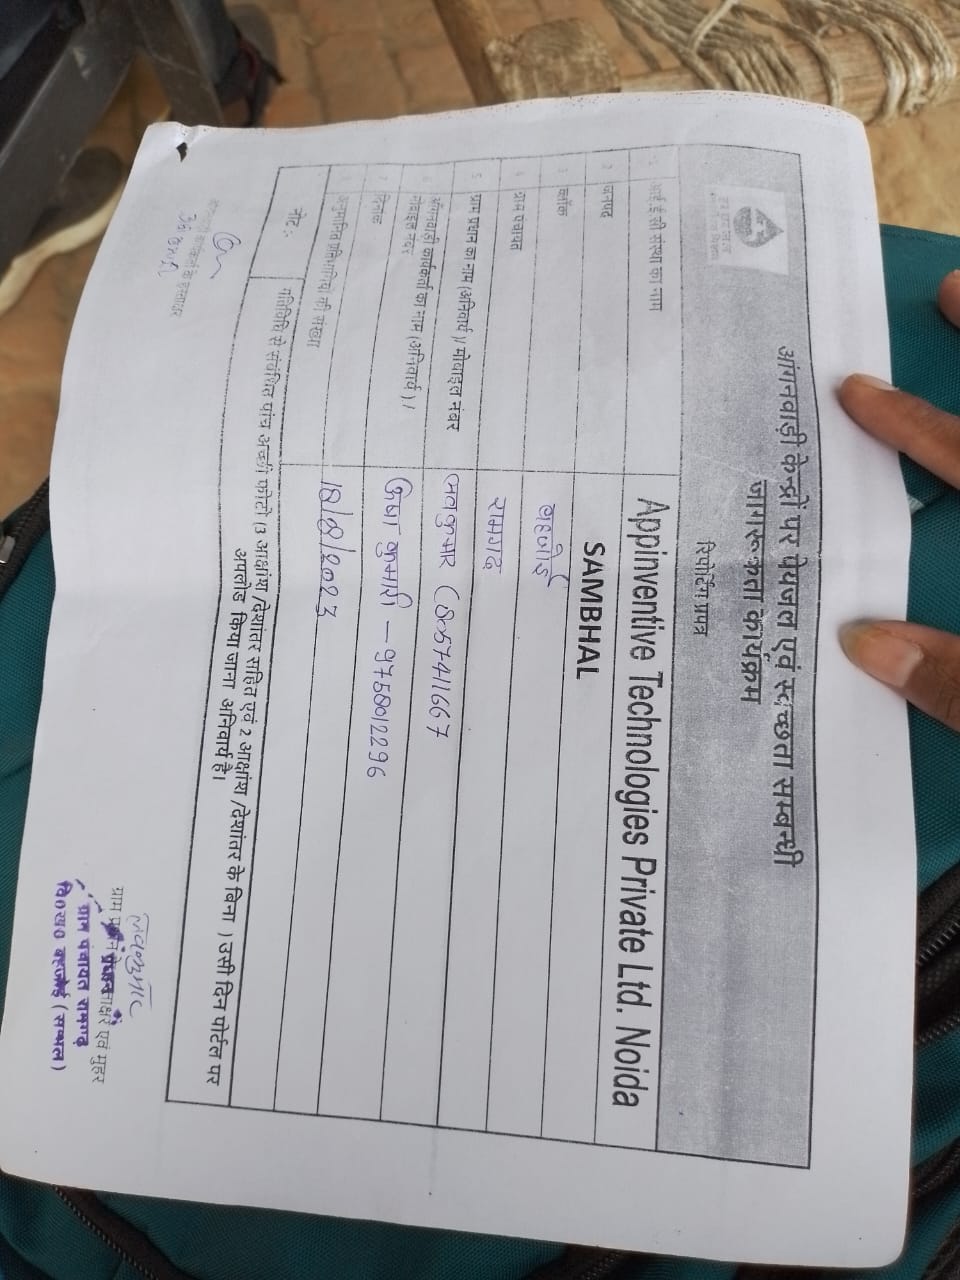 आंगनवाड़ी केन्द्रों पर पेयजल एवं स्वच्छता सम्बन्धी
जागरूकता कार्यक्रम
रिपोर्टिंग प्रपत्र
1 आई ई सी संस्था का नाम Appinventive Technologies Private Ltd. Noida
2 जनपद SAMBHAL
3 ब्लॉक बहजोई
4 ग्राम पंचायत रामगढ
5 ग्राम प्रधान का नाम (अनिवार्य )/ मोबाइल नंबर
6 आंगनवाड़ी कार्यकर्ता का नाम (अनिवार्य ) /
मोबाइल नंबर
कुमारी - 9758012296
7 दिनांक 18/8/2023
8 अनुमानित प्रतिभागियों की संख्या
नोट :- गतिविधि से संबंधित पांच अच्छी फोटो (3 आक्षांश /देशांतर सहित एवं 2 आक्षांश /देशांतर के बिना ) उसी दिन पोर्टल पर
अपलोड किया जाना अनिवार्य है।
ग्राम पंचायत रामगढ़
वि०ख० बहजोई (सम्भल)